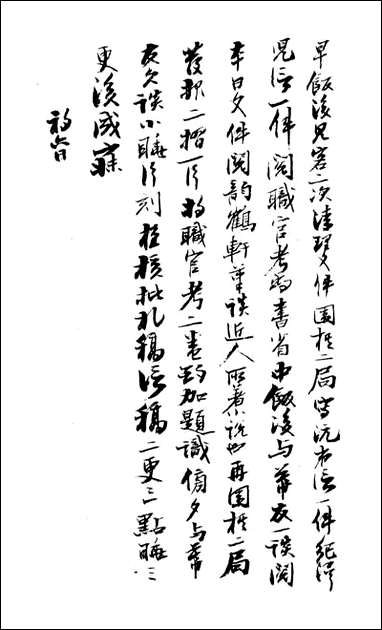 早飯後見客二次清理文件圍棋二局寫沅弟信一件紀澤
兒信一件閱職官考尚書省中飯後與幕友一談閱
本日文件閱韵鶴軒筆談近人所著小說也再圍棋二局
發報二摺一片將職官考二卷略加題識傍夕與幕
友久談小睡片刻核批札稿信稿二更三點睡三
更後成寐
初六日